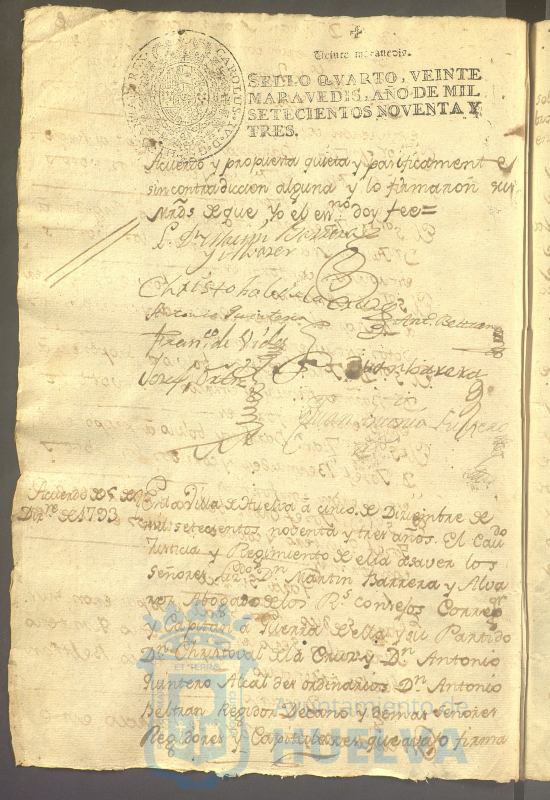 Veinte maravedis.
SELLO QVARTO, VEINTE
MARAVEDIS, AÑO DE MIL
SETECIENTOS NOVENTA Y
TRES.
CAROLUS IV D G
Acuerdo y propuesta quieta y pacificament e
sin contradiccion alguna y lo firmaron sus
Mrds de que Yo el enno doy fee=
L. Dn Martin Barrera
y Alvarez
Christobal de la Cruz
Antonio Quintero
Ant. Beltran
Franco de Vides
Barrera
Josef
Juan
Acuerdo de 5 de
Dizre de 1793
En la Villa de Huelva a cinco de Diziembre de
mil setecientos noventa y tres años. El Cavdo
Justicia y Regimiento de ella asaver los
Señores Dn Martin Barrera y Alva
rez Abogado de los Rs consejos Correxor
y Capitan a Guerra de ella y su Partido
Dn Christoval de la Cruz y Dn Antonio
Quintero Alcaldes ordinarios Dn Antonio
Beltran Regidor Decano y demas Señores
Regidores y Capitulares que avajo firma
Ayuntamiento de
HUELVA